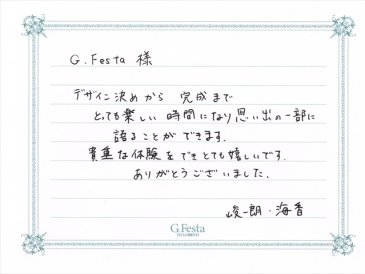 G.Festa 様
デザイン決めから 完成まで
とても楽しい 時間になり思い出の一部に
語ることができます.
貴重な体験をできとても嬉しいです.
ありがとうございました.
峻一朗・海香
G.Festa
DIAMOND